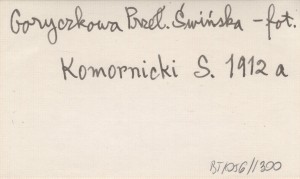 Goryczkowa Przeł. Świńska - fot.
Komornicki S. 1912 a
BJ/056/1300